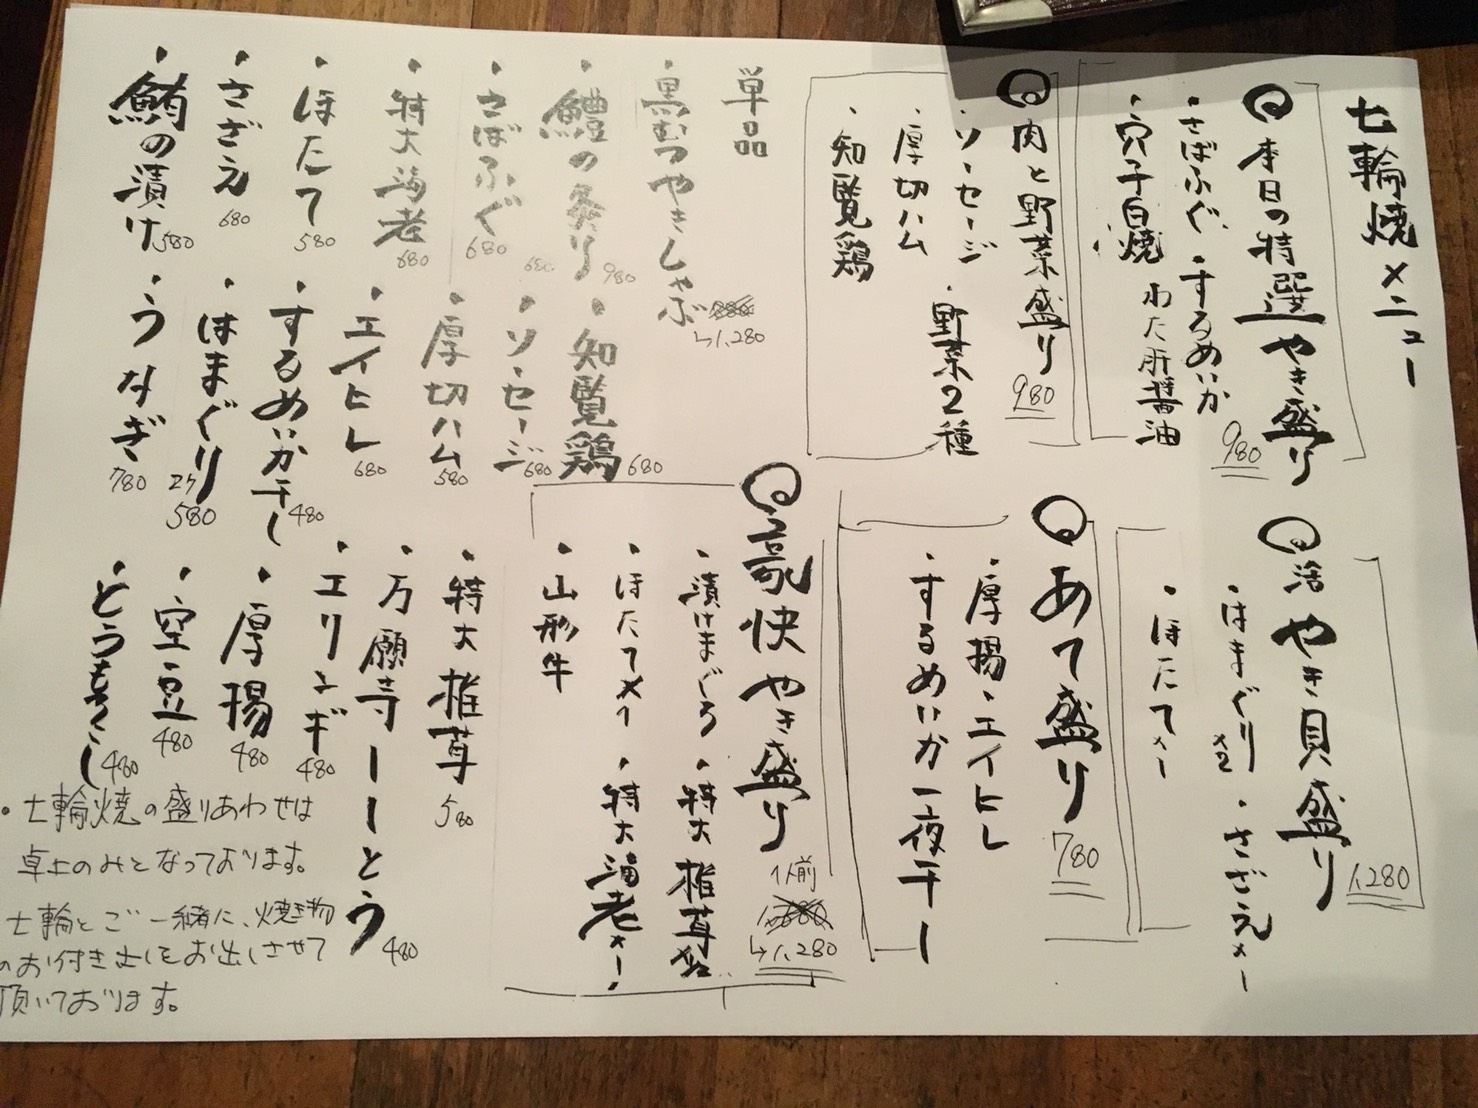 七輪焼メニュー
本日の特選やき盛り
980
・さばふぐ ・するめいか
・穴子白焼 わた肝醤油
肉と野菜盛り
980
・ソーセージ ・野菜2種
・厚切ハム
・知覧鶏
活やき貝盛り
1,280
・はまぐり×2 ・さざえ×1
・ほたて×1
あて盛り
780
・厚揚・エイヒレ
・するめいか一夜干し
豪快やき盛り
1人前
↳1,280
・漬けまぐろ ・特大椎茸
・ほたて×1 ・特大海老×1
・山形牛
単品
・黒むつやきしゃぶ
↳1,280
・鱧の炙り 980
・さばふぐ 680
・特大海老 680
・ほたて 580
・さざえ 680
・鮪の漬け 580
・知覧鶏 680
・ソーセージ 680
・厚切ハム 580
・エイヒレ 680
・するめいか干し 480
・はまぐり 2ケ 580
・うなぎ 780
・特大椎茸 580
・万願寺しーとう 480
・エリンギ 480
・厚揚 480
・空豆 480
・とうもろこし 480
・七輪焼の盛りあわせは
卓上のみとなっております。
七輪とご一緒に、焼き物
のお付き出しをお出しさせて
頂いております。